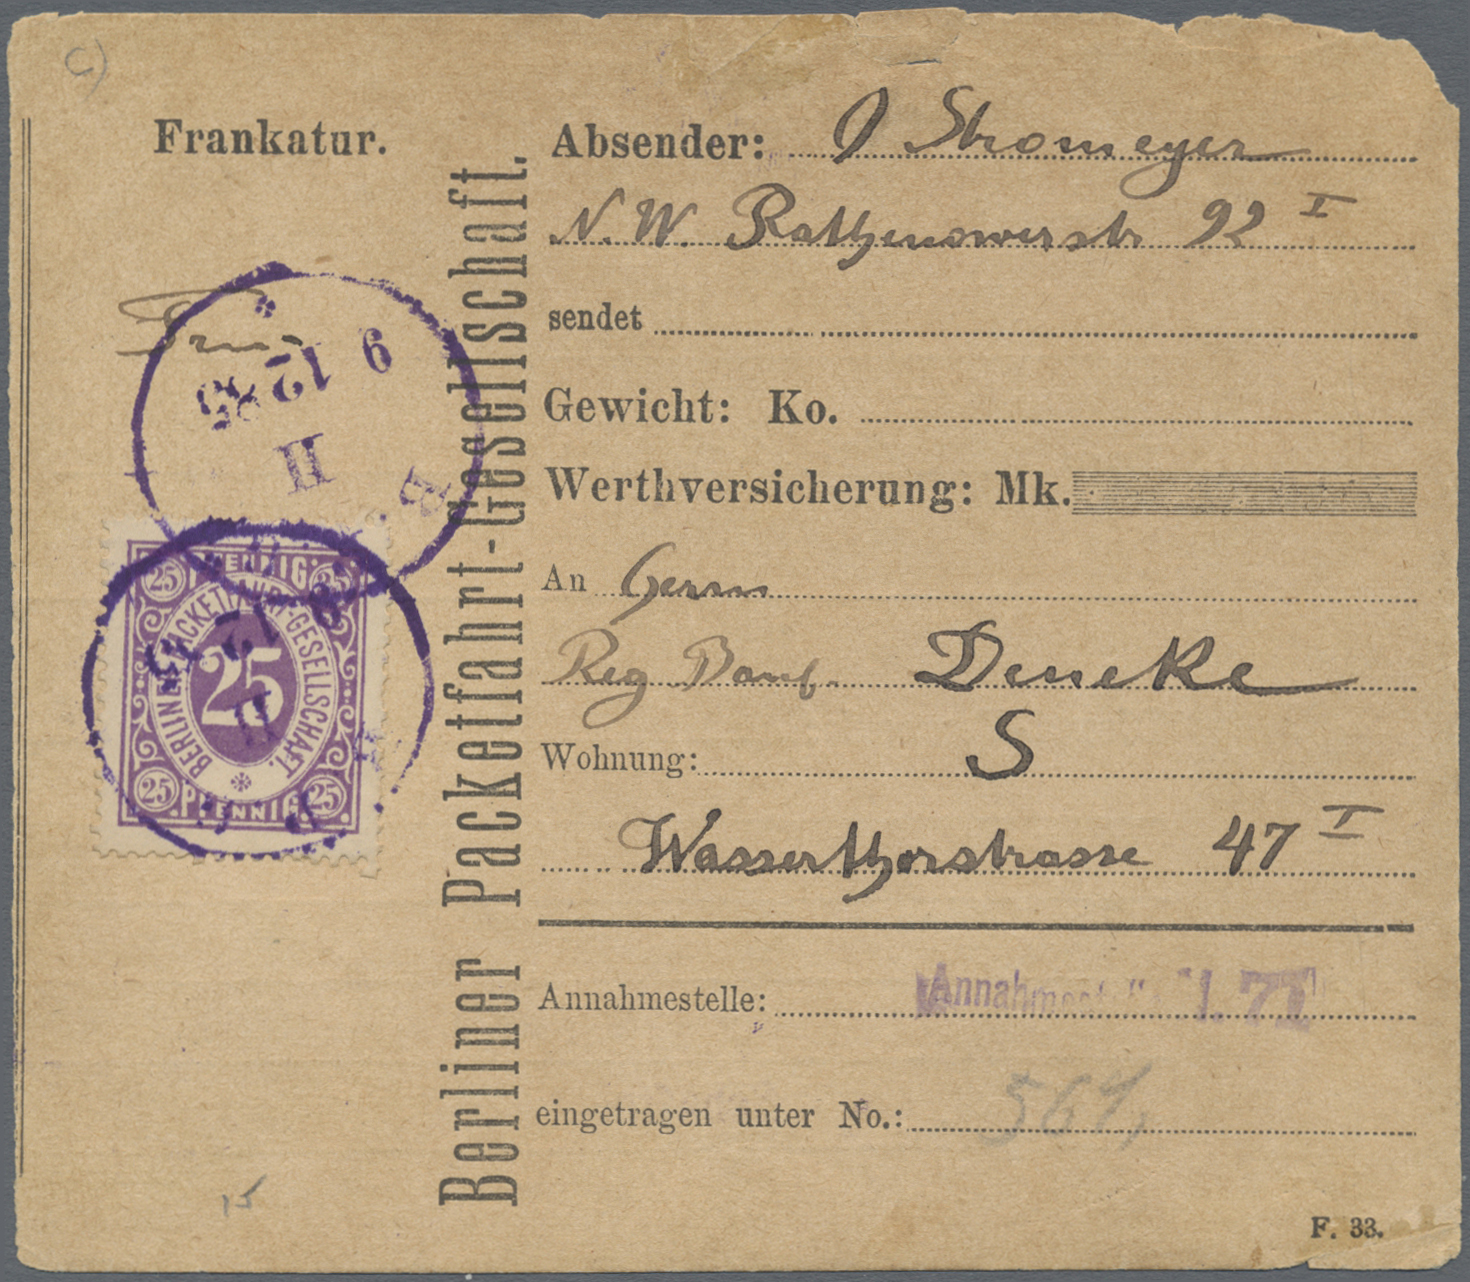 c)
Frankatur.
Berliner Packetfahrt-Gesellschaft.
9 12 85
II
B.
PFENNIG
25 25
BERLINER PACKETFAHRT-GESELLSCHAFT.
25
II
25 PFENNIG 25
15
Absender: J Stromeyer
N. W. Rathenowerstr 92 I
sendet
Gewicht: Ko.
Werthversicherung: Mk.
An Herrn
Reg Deneke
Wohnung: S
Wasserthorstrasse 47 I
Annahmestelle: Annahmest
eingetragen unter No.: 564,
F. 33.